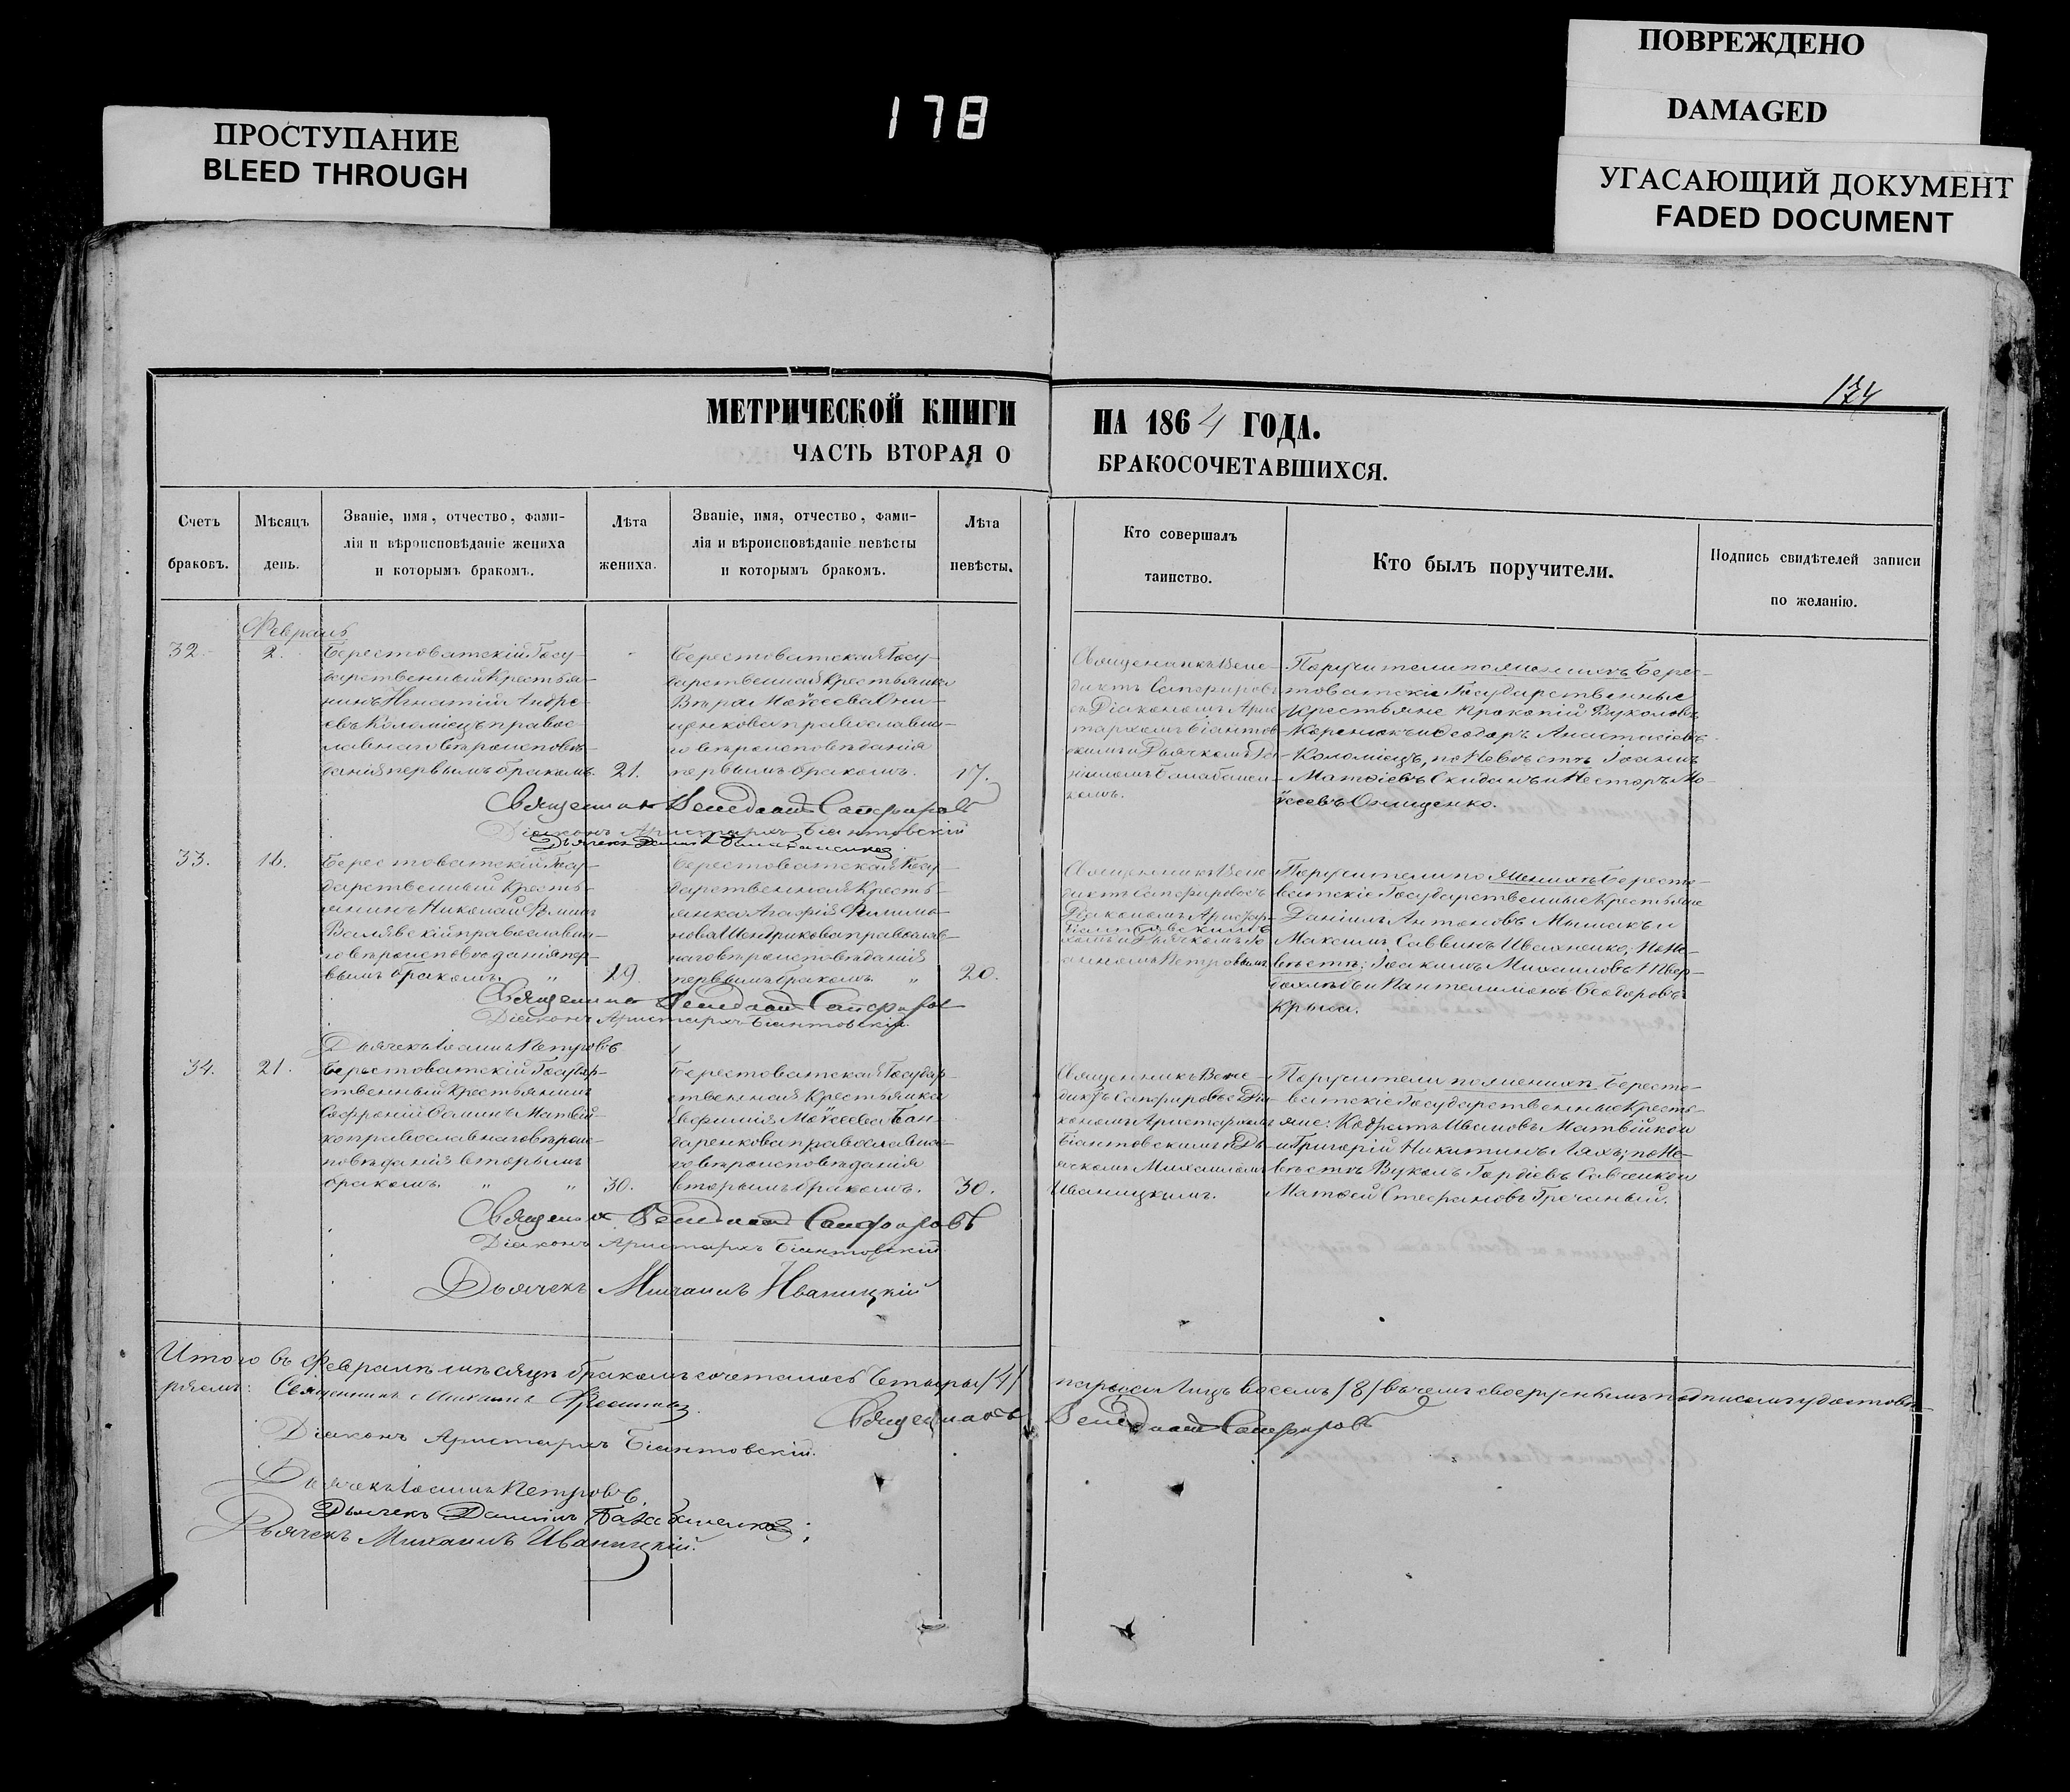 ПОВРЕЖДЕНО
DAMAGED
178
ПРОСТУПАНИЕ
BLEED THROUGH
УГАСАЮЩИЙ ДОКУМЕНТ
FADED DOCUMENT
174
МЕТРИЧЕСКОЙ КНИГИ
НА 1864 ГОДА.
ЧАСТЬ ВТОРАЯ О
БРАКОСОЧЕТАВШИХСЯ.
Счетъ
браковъ.
Мѣсяцъ
день.
Званіе, имя, отчество, фами-
лія и вѣроисповѣданіе жениха
и которымъ бракомъ.
Лѣта
жениха.
Званіе, имя, отчество, фами-
лія и вѣроисповѣданіе невѣсты
и которымъ бракомъ.
Лѣта
невѣсты.
Кто совершалъ
таинство.
Кто былъ поручители.
Подпись свидѣтелей записи
по желанію.
Февраль
32.
2.
Берестоватскій Госу-
дарственный Крестья-
нинъ Игнатій Андре-
евъ Коломіецъ правос-
лавнаго вѣроисповѣ-
данія первымъ бракомъ.
21.
Берестоватская Госу-
дарственная Крестьянка
Вѣра Моѵсеева Они-
щенкова православна-
го вѣроисповѣданія
первымъ бракомъ.
17.
Священникъ Вене-
диктъ Сапфировъ
съ Діакономъ Арис-
тархомъ Біантов-
скимъ и Дьячкомъ Да-
ніиломъ Балабанен-
комъ.
Поручители по женихѣ Берес-
товатскіе Государственные
Крестьяне Прокопій Вуколовъ
Коренюкъ и Ѳеодоръ Анастасіевъ
Коломіецъ, по Невѣстѣ Іоаннъ
Матѳіевъ Скиданъ и Несторъ Мо-
ѵсеевъ Онищенко.
Священникъ Венедиктъ Сапфировъ
Діаконъ Аристархъ Біантовскій
Дьячекъ Даніилъ Балабаненко
33.
16.
Берестоватскій Госу-
дарственный Кресть-
янинъ Николай Ѳоминъ
Валявскій православна-
го вѣроисповѣданія пер-
вымъ бракомъ. "
19
Берестоватская Госу-
дарственная Кресть-
янка Агафія Филимо-
нова православ-
наго вѣроисповѣданія
первымъ бракомъ. "
20.
Священникъ Вене-
диктъ Сапфировъ съ
Діакономъ Аристар-
Біантовскимъ
хомъ и Дьячкомъ Іо-
анномъ Петровымъ
Поручители по женихѣ Бересто-
ватскіе Государственные Крестьяне
Даніилъ Антоновъ и
Максимъ Саввинъ Иващенко; по Не-
вѣстѣ: Іоакимъ Михаиловъ Твер-
дохлѣбъ и Пантелимонъ Ѳеодоровъ
Крыса.
Священникъ Венедиктъ Сапфировъ
Діаконъ Аристархъ Біантовскій
Дьячекъ Іоаннъ Петровъ
34.
21.
Берестоватскій Государ-
ственный Крестьянинъ
Софроній Ѳоминъ Матвій-
ко православнаго вѣроис-
повѣданія вторымъ
бракомъ. " "
30.
Берестоватская Государ-
ственная Крестьянка
Евфимія Моѵсеева Бон-
даренкова православна-
го вѣроисповѣданія
вторымъ бракомъ.
30.
Священникъ Вене-
диктъ Сапфировъ съ Діа-
кономъ Аристархомъ
Біантовскимъ и Дь-
ячкомъ Михаиломъ
Иваницкимъ.
Поручители по женихѣ Бересто-
ватскіе Государственные Кресть-
яне: Кодратъ Ивановъ Матвійко и
и Григорій Никитинъ Ляхъ; по Не-
вѣстѣ Вуколъ Гордіевъ Савенко и
Матѳей Стефановъ Гречаный.
Священникъ Венедиктъ Сапфировъ
Діаконъ Аристархъ Біантовскій
Дьячекъ Михаилъ Иваницкій
Итого въ Февралѣ мѣсяцѣ бракомъ сочеталось Четыре /4/ пары а Лицъ восемь /8/ въ чемъ своеручнымъ подписомъ удостовѣ-
ряемъ: Священникъ Михаилъ
Священникъ Венедиктъ Сапфировъ
Діаконъ Аристархъ Біантовскій.
Дьячекъ Іоаннъ Петровъ.
Дьячекъ Даніилъ Балабаненко;
Дьячекъ Михаилъ Иваницкій.